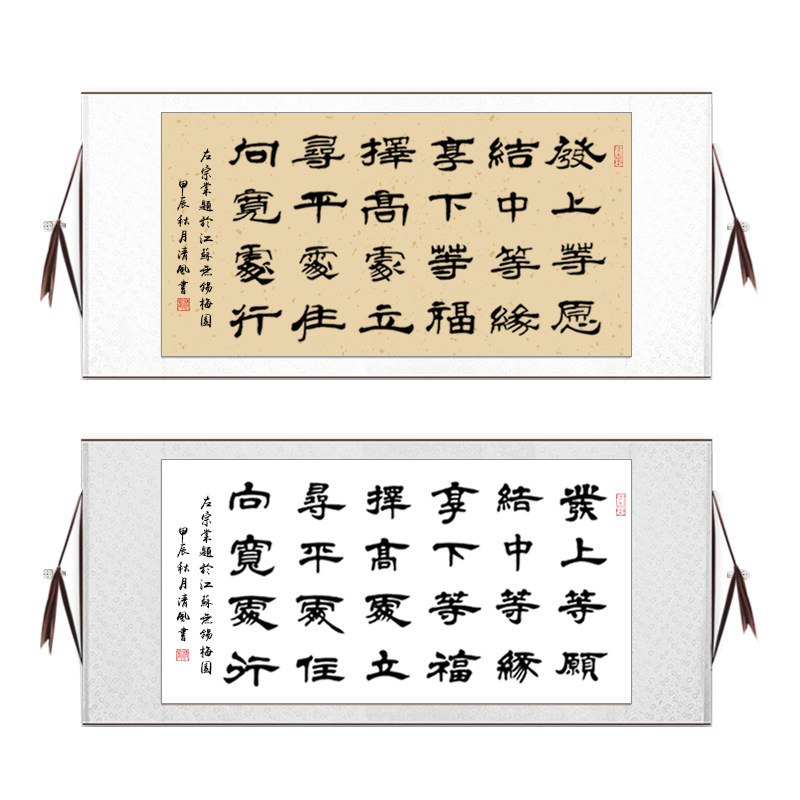 發上等愿
結中等緣
享下等福
擇高處立
尋平處住
向寬處行
左宗業題於江蘇无錫梅園
甲辰秋月清風書
發上等願
結中等緣
享下等福
擇高處立
尋平處住
向寬處行
左宗業題於江蘇无錫梅園
甲辰秋月清風書